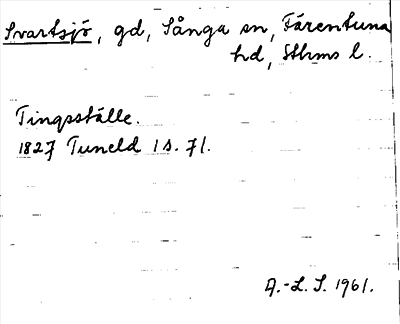 Svartsjö, gd, Sånga sn, Färentuna
hd, Sthms l.
Tingsställe.
1827 Tuneld 1 s. 71.
A.-L. S. 1961.